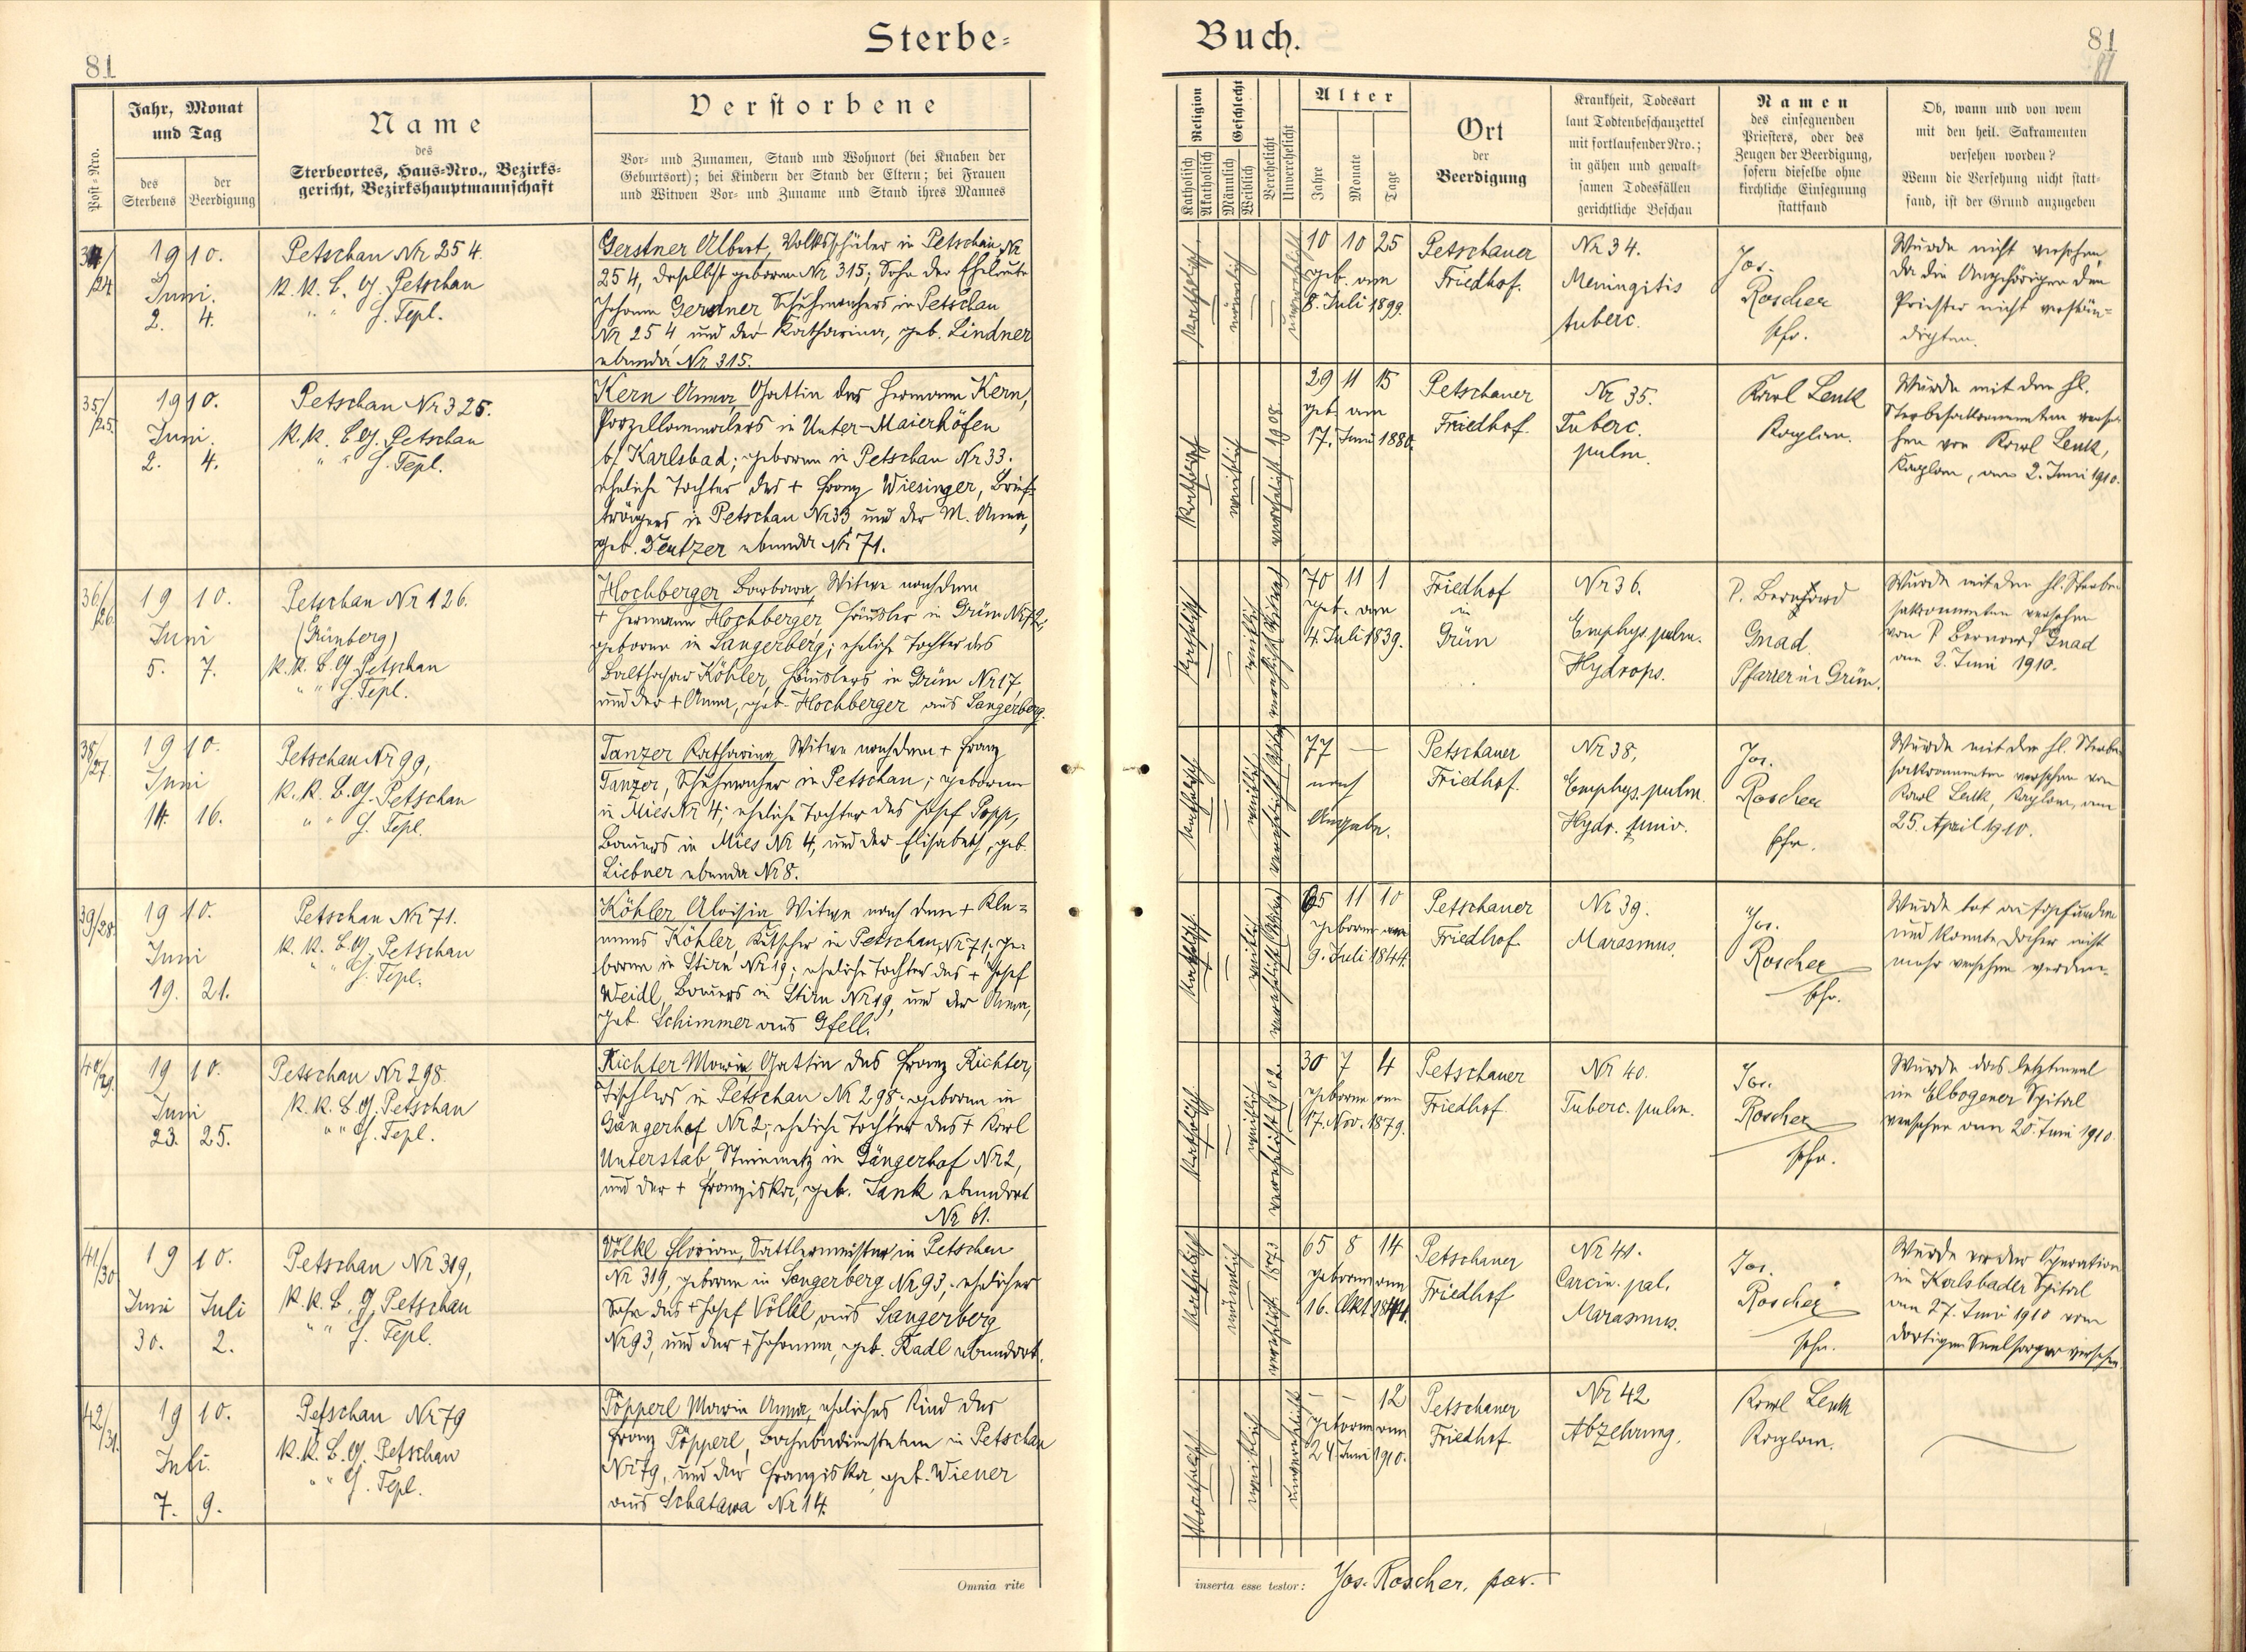 Sterbe-
Buch.
81
81
81
Post-Nro.
Jahr, Monat
und Tag
des
Sterbens
der
Beerdigung
Name
des
Sterbeortes, Haus-Nro., Bezirks-
gericht, Bezirkshauptmannschaft
Verstorbene
Vor- und Zunamen, Stand und Wohnort (bei Knaben der
Geburtsort); bei Kindern der Stand der Eltern; bei Frauen
und Witwen Vor- und Zuname und Stand ihres Mannes
Religion
Katholisch
Akatholisch
Geschlecht
Männlich
Weiblich
Verehelicht
Unverehelicht
Alter
Jahre
Monate
Tage
Ort
der
Beerdigung
Krankheit, Todesart
laut Todtenbeschauzettel
mit fortlaufender Nro.;
in gähen und gewalt-
samen Todesfällen
gerichtliche Beschau
Namen
des einsegnenden
Priesters, oder des
Zeugen der Beerdigung,
sofern dieselbe ohne
kirchliche Einsegnung
stattfand
Ob, wann und von wem
mit den heil. Sakramenten
versehen worden?
Wenn die Versehung nicht statt-
fand, ist der Grund anzugeben
34/
24
1910.
Juni.
2. 4.
Petschau Nr 254.
K. K. B. G. Petschau
" " H. Tepl.
Gerstner Albert, Volksschüler in Petschau Nr
254, daselbst geboren Nr 315; Sohn der Eheleute
Johann Gerstner Schuhmachers in Petschau
Nr 254 und der Katharina, geb. Lindner
ebenda Nr 315.
katholisch
männlich
unverehelicht
10 10 25
geb. am
8. Juli 1899.
Petschauer
Friedhof.
Nr 34.
Meningitis
tuberc.
Jos.
Roscher
Pfr.
Wurde nicht versehen,
da die Angehörigen den
Priester nicht verstän-
digten.
35/
25.
1910.
Juni.
2. 4.
Petschau Nr 325.
K. K. B. G. Petschau
" " H. Tepl.
Kern Anna, Gattin des Hermann Kern,
Porzellanmalers in Unter-Maierhöfen
b/ Karlsbad; geboren in Petschau Nr 33.
eheliche Tochter des + Franz Wiesinger, Brief-
trägers in Petschau Nr 33 und der M. Anna,
geb. Deutzer ebenda Nr 71.
katholisch
weiblich
verehelicht 1908.
29 11 15
geb. am
17. Juni 1880.
Petschauer
Friedhof.
Nr 35.
Tuberc.
pulm.
Karl Lenk
Kaplan.
Wurde mit den hl.
Sterbesakramenten verse-
hen von Karl Lenk,
Kaplan, am 2. Juni 1910.
36/
26
1910.
Juni
5. 7.
Petschau Nr 126.
(Grünberg)
K. K. B. G. Petschau
" " H. Tepl.
Hochberger Barbara, Witwe nach dem
+ Hermann Hochberger Häusler in Grün Nr 72;
geboren in Sangerberg; eheliche Tochter des
Balthasar Köhler, Häuslers in Grün Nr 17,
und der + Anna, geb. Hochberger aus Sangerberg.
katholisch
weiblich
verehelicht
70 11 1
geb. am
4. Juli 1839.
Friedhof
in
Grün
Nr 36.
Emphys. pulm.
Hydrops.
P. Bernhard
Gnad
Pfarrer in Grün.
Wurde mit den hl. Sterbe-
sakramenten versehen
von P. Bernard Gnad
am 2. Juni 1910.
38/
27.
1910.
Juni
14. 16.
Petschau Nr 99,
K. K. B. G. Petschau
" " H. Tepl.
Tanzer Katharina, Witwe nach dem + Franz
Tanzer, Schuhmacher in Petschau; geboren
in Mies Nr 4; eheliche Tochter des Josef Popp,
Bauers in Mies Nr 4, und der Elisabeth, geb.
Liebner ebenda Nr 8.
katholisch
weiblich
verehelicht
77 —
nach
Angabe.
Petschauer
Friedhof.
Nr 38,
Emphys. pulm.
Hydr. univ.
Jos.
Roscher
Pfr.
Wurde mit den hl. Sterbe-
sakramenten versehen von
Karl Lenk, Kaplan, am
25. April 1910.
39/28.
1910.
Juni
19. 21.
Petschau Nr 71.
K. K. B. G. Petschau
" " H. Tepl.
Köhler Aloisia Witwe nach dem + Kle-
mens Köhler, Kutscher in Petschau, Nr 71; ge-
boren in Stirn Nr 19; eheliche Tochter des + Josef
Weidl, Bauers in Stirn Nr 19, und der Anna,
geb. Schimmer aus Gfell.
katholisch
weiblich
verehelicht
65 11 10
geboren am
9. Juli 1844.
Petschauer
Friedhof.
Nr 39.
Marasmus.
Jos.
Roscher
Pfr.
Wurde tot aufgefunden
und konnte daher nicht
mehr versehen werden.
40/29.
1910.
Juni
23. 25.
Petschau Nr 298.
K. K. B. G. Petschau
" " H. Tepl.
Richter Maria, Gattin des Franz Richter,
Tischlers in Petschau Nr 298. geboren in
Gängerhof Nr 2; eheliche Tochter des + Karl
Unterstab, Steinmetz in Gängerhof Nr 2,
und der + Franziska, geb. Sank ebendort
Nr 61.
katholisch
weiblich
verehelicht 1902.
30 7 4
geboren am
17. Nov. 1879.
Petschauer
Friedhof
Nr 40.
Tuberc. pulm.
Jos.
Roscher
Pfr.
Wurde das letztemal
im Elbogener Spital
versehen am 20. Juni 1910.
41/
30
1910.
Juni Juli
30. 2.
Petschau Nr 319,
K. K. B. G. Petschau
" " H. Tepl.
Völkl Florian, Sattlermeister in Petschau
Nr 319, geboren in Sangerberg Nr 93, ehelicher
Sohn des + Josef Völkl aus Sangerberg
Nr 93, und der + Johanna, geb. Radl ebendort.
katholisch
männlich
verehelicht 1873
65 8 14
geboren am
16. Okt 1844.
Petschauer
Friedhof
Nr 41.
Carcin. pal.
Marasmus.
Jos.
Roscher
Pfr.
Wurde vor der Operation
im Karlsbader Spital
am 27. Juni 1910 vom
dortigen Seelsorger versehen.
42/
31.
1910.
Juli.
7. 9.
Petschau Nr 79
K. K. B. G. Petschau
" " H. Tepl.
Pöpperl Maria Anna, eheliches Kind des
Franz Pöpperl, Bahnbediensteten in Petschau
Nr 79, und der Franziska, geb. Wiener
aus Schatawa Nr 14.
katholisch
weiblich
unverehelicht
— — 12
geboren am
24. Juni 1910.
Petschauer
Friedhof.
Nr 42
Abzehrung.
Karl Lenk
Kaplan.
Omnia rite
inserta esse testor: Jos. Roscher, par.